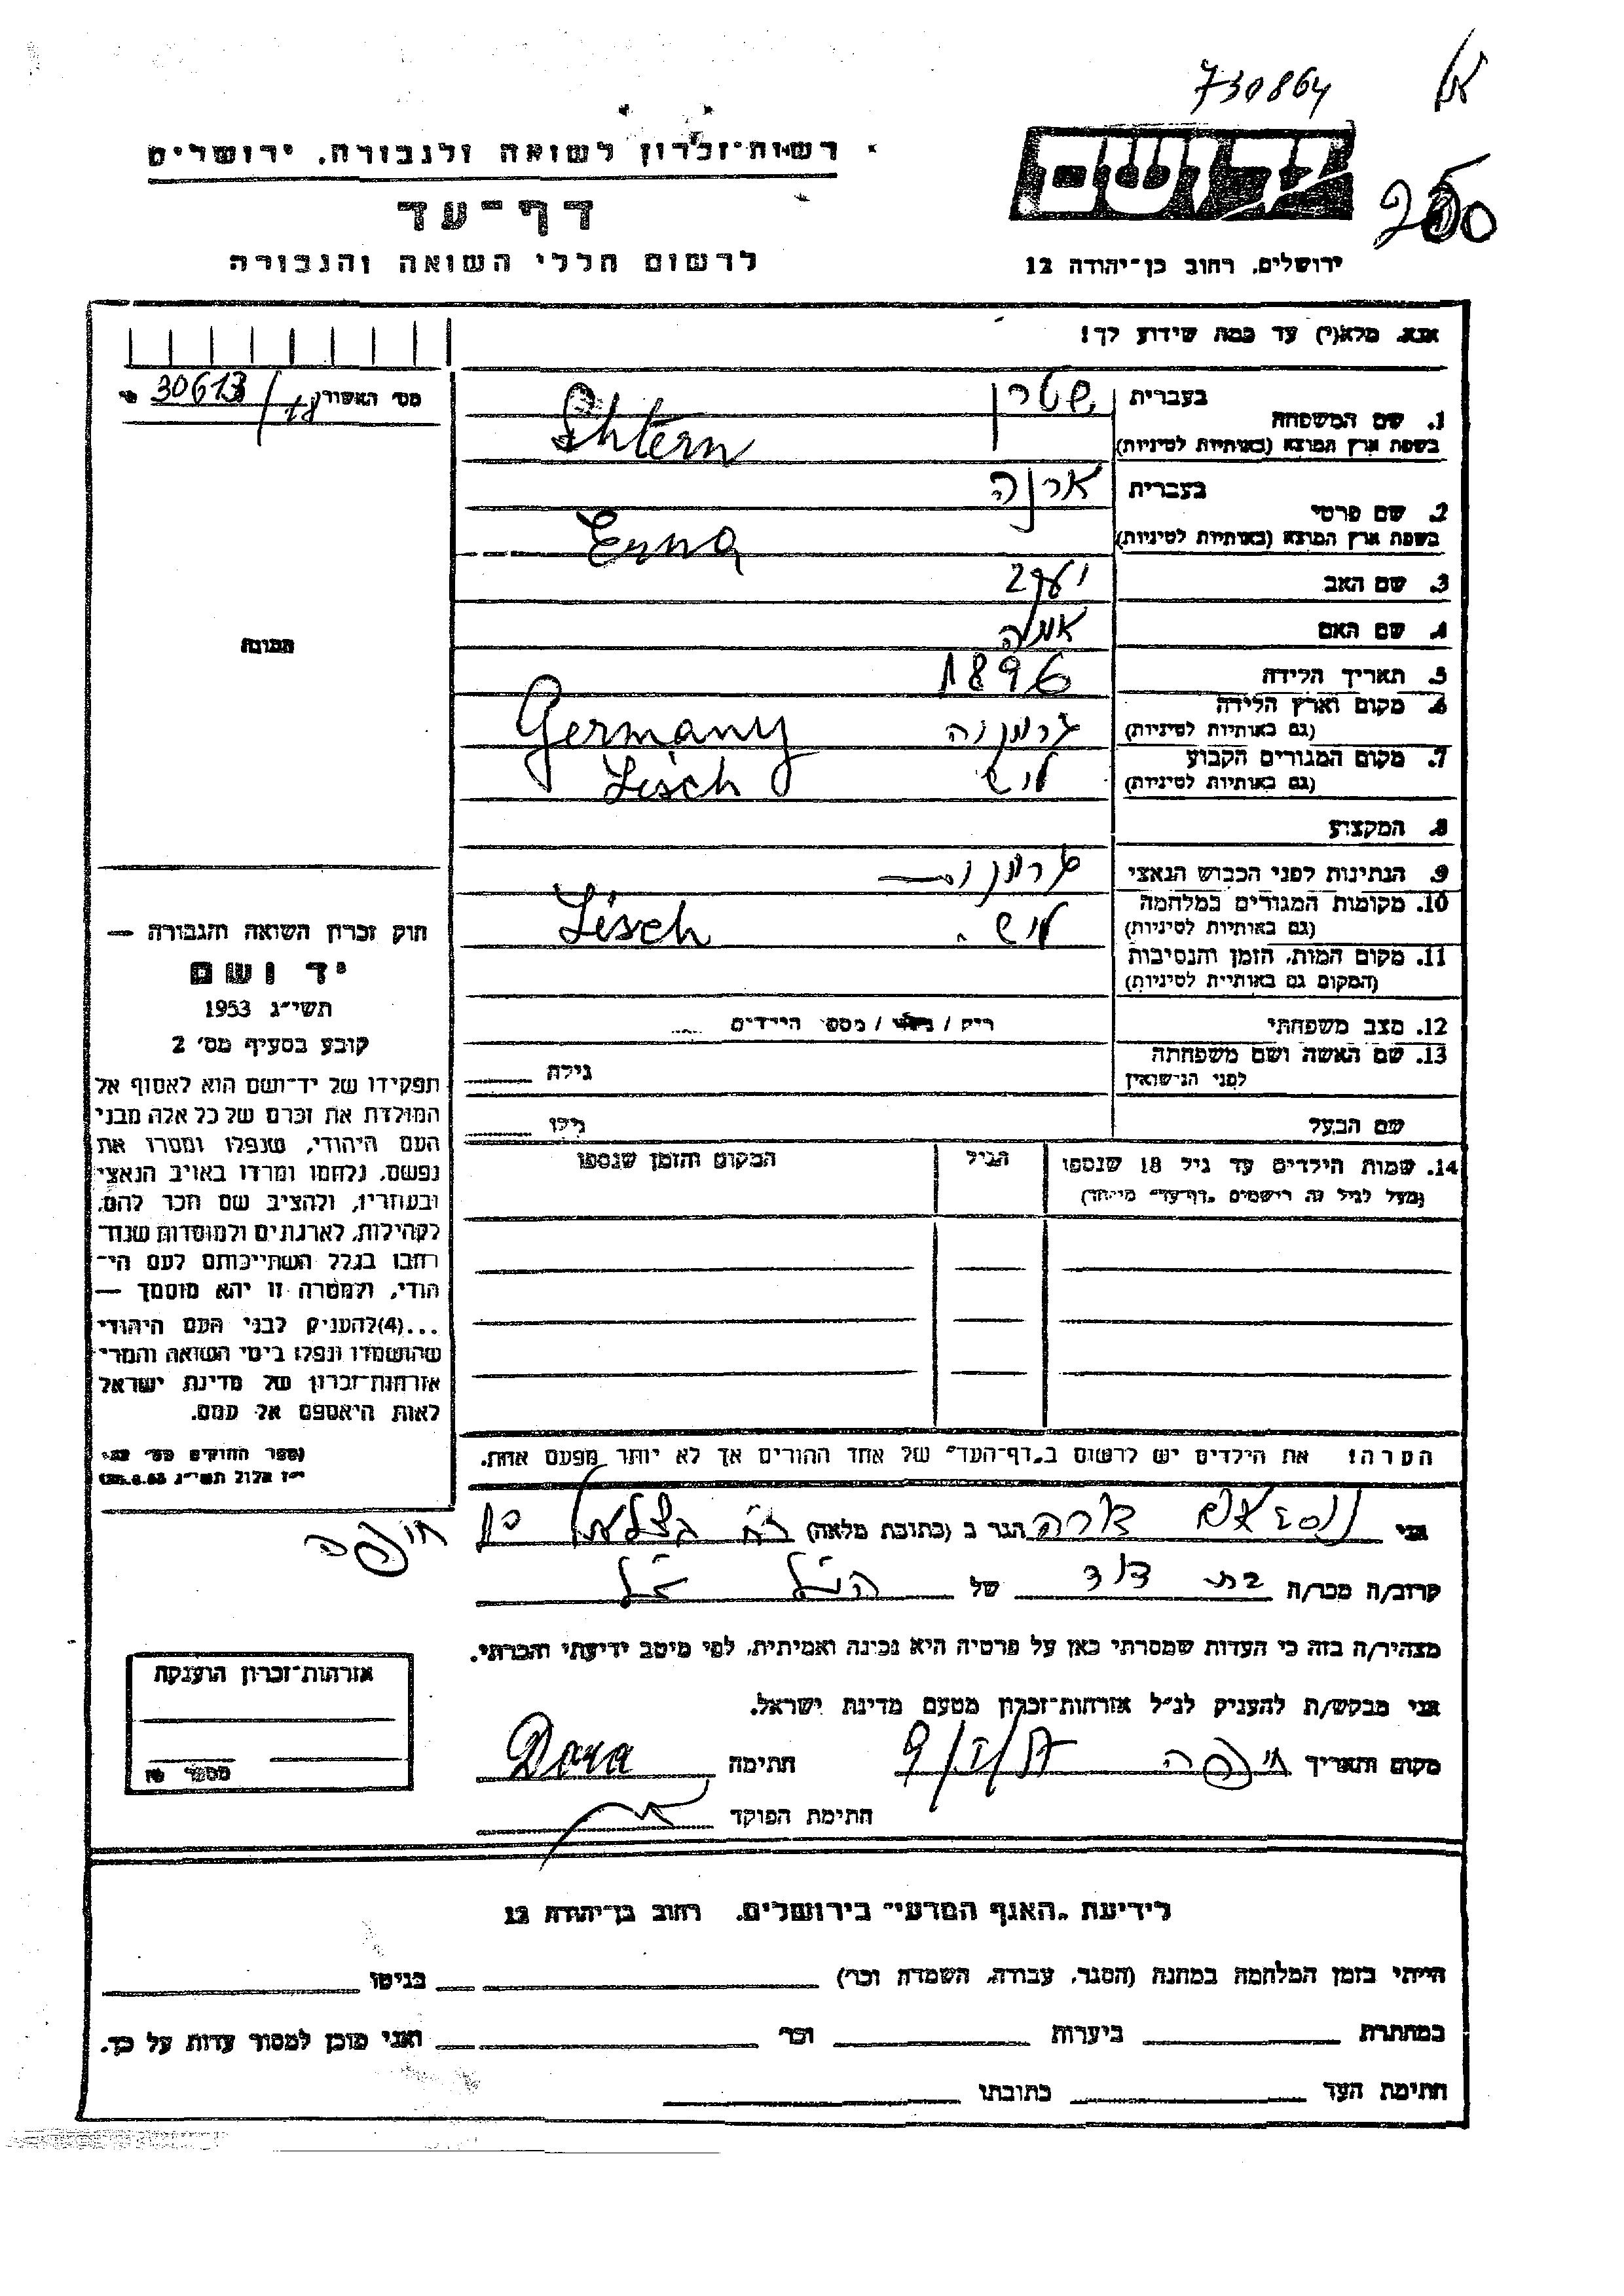 730864
רשות-זכרון לשואה ולגבורה, ירושלים
דף-עד
לרשום חללי השואה והגבורה
ידושם
ירושלים, רחוב בן-יהודה 12
אנא, מלא(י) עד כמה שידוע לך!
מס' האשורך 30613/18
1. שם המשפחה
בעברית שטרן
בשפת ארץ המוצא (באותיות לטיניות) Shtern
2. שם פרטי
בעברית ארנה
בשפת ארץ המוצא (באותיות לטיניות) Erna
3. שם האב יעקב
4. שם האם
5. תאריך הלידה 1896
6. מקום וארץ הלידה
(גם באותיות לטיניות) גרמניה Germany
7. מקום המגורים הקבוע
(גם באותיות לטיניות) ליש Lisch
8. המקצוע
9. הנתינות לפני הכבוש הנאצי גרמנית
10. מקומות המגורים במלחמה
(גם באותיות לטיניות) ליש. Lisch
11. מקום המות, הזמן והנסיבות
(המקום גם באותיות לטיניות)
12. מצב משפחתי
רוק / נשוי / מספר הילדים
13. שם האשה ושם משפחתה
לפני הנישואין
גילה
שם הבעל
גילו
14. שמות הילדים עד גיל 18 שנספו
(מעל לגיל זה רושמים „דף-עד" מיוחד)
הגיל
המקום והזמן שנספו
הערה! את הילדים יש לרשום ב„דף-העד" של אחד ההורים אך לא יותר מפעם אחת.
תמונה
חוק זכרון השואה והגבורה —
יד ושם
תשי"ג 1953
קובע בסעיף מס' 2
תפקידו של יד-ושם הוא לאסוף אל
המולדת את זכרם של כל אלה מבני
העם היהודי, שנפלו ומסרו את
נפשם, נלחמו ומרדו באויב הנאצי
ובעוזריו, ולהציב שם וזכר להם,
לקהילות, לארגונים ולמוסדות שנח-
רחבו בגלל השתייכותם לעם הי-
הודי, ולמטרה זו יהא מוסמך —
...(4) להעניק לבני העם היהודי
שהושמדו ונפלו בימי השואה והמרי
אזרחות-זכרון של מדינת ישראל
לאות היאספם אל עמם.
אני דורה הגר ב (כתובת מלאה) רח בצלאל
חיפה
קרוב/ה מכר/ה בת דוד של הנ"ל
מצהיר/ה בזה כי העדות שמסרתי כאן על פרטיה היא נכונה ואמיתית, לפי מיטב ידיעתי והכרתי.
אני מבקש/ת להעניק לנ"ל אזרחות-זכרון מטעם מדינת ישראל.
מקום ותאריך חיפה חתימה Dora
חתימת הפוקד
אזרחות-זכרון הוענקה
מספר
לידיעת „האגף המדעי" בירושלים, רחוב בן-יהודה 12
הייתי בזמן המלחמה במחנה (הסגר, עבודה, השמדה וכו') בגיטו
במחתרת ביערות וכו' ואני מוכן למסור עדות על כך.
חתימת העד כתובתו